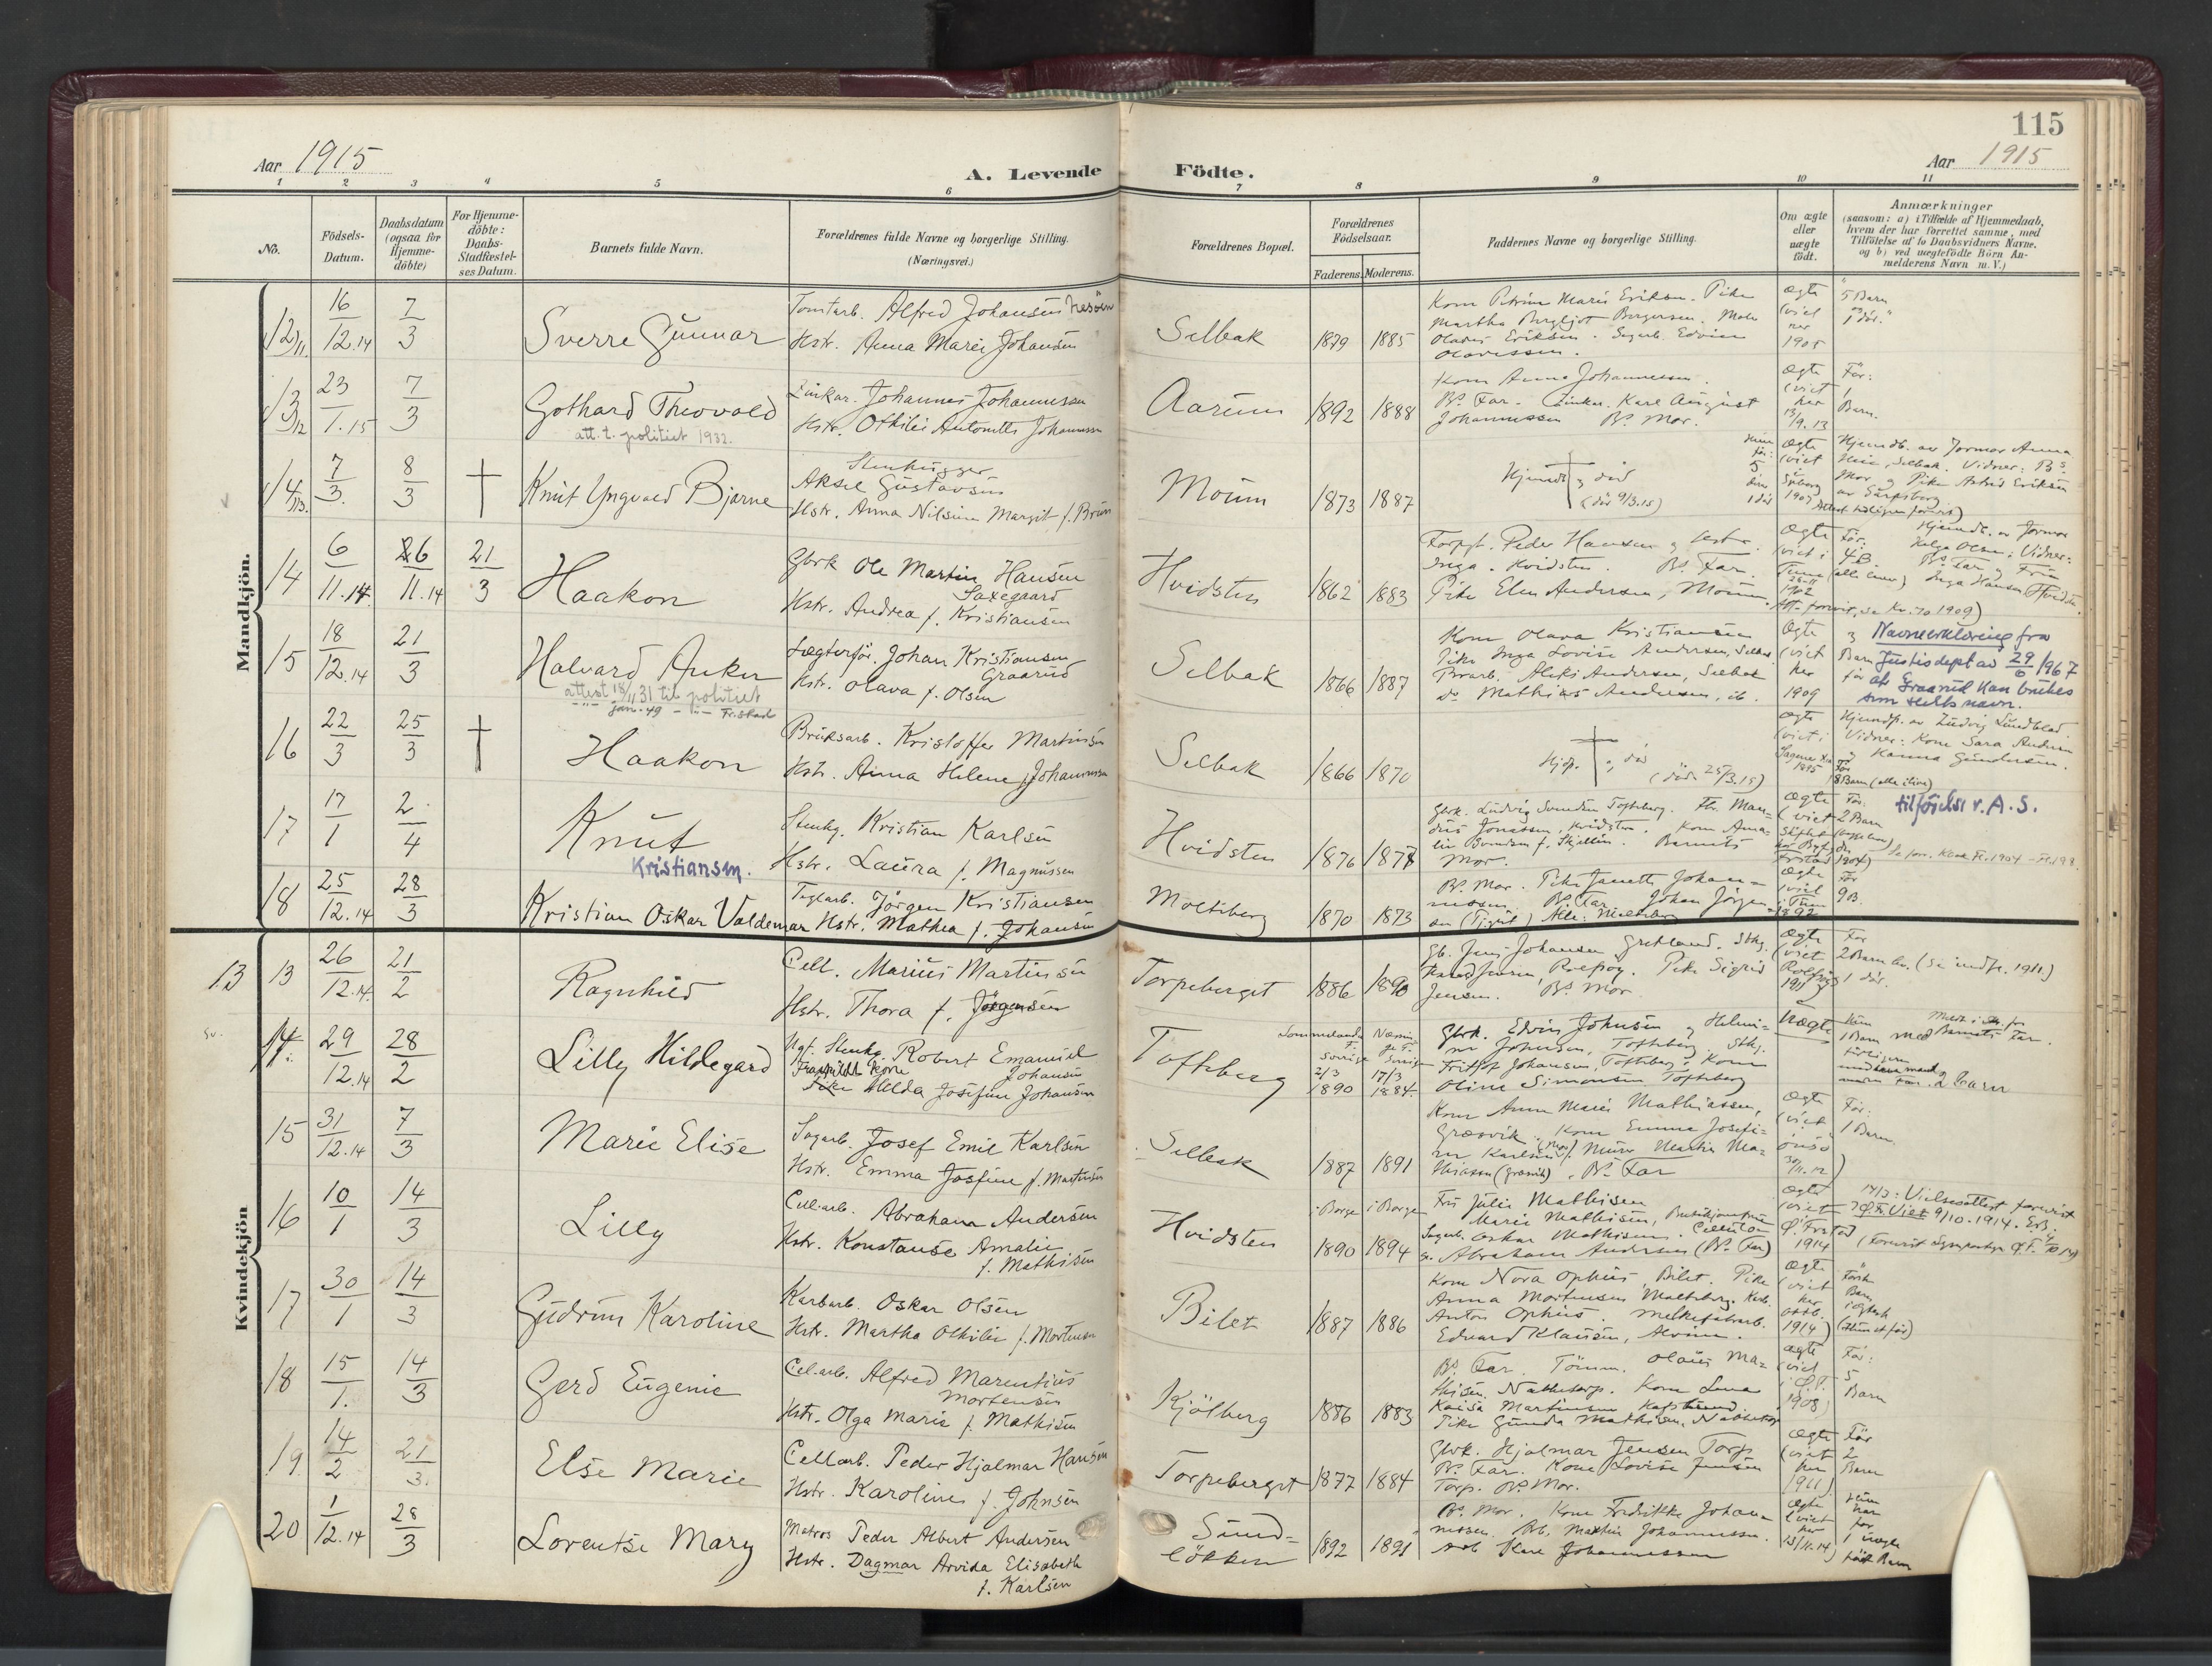 115
Aar 1915
A. Levende Födte.
Aar 1915
1 2 3 4 5 6 7 8 9 10 11
No.
Födsels-
Datum.
Daabsdatum
(ogsaa for
Hjemme-
döbte)
For Hjemme-
döbte:
Daabs-
Stadfæstel-
ses Datum.
Barnets fulde Navn.
Forældrenes fulde Navne og borgerlige Stilling.
(Næringsvei.)
Forældrenes Bopæl.
Forældrenes
Födselsaar.
Faderens. Moderens.
Faddernes Navne og borgerlige Stilling.
Om ægte
eller
uægte
födt.
Anmærkninger
(saasom: a) i Tilfælde af Hjemmedaab,
hvem der har forrettet samme, med
Tilföielse af to Daabsvidners Navne,
og b) ved uægtefödte Börn An-
melderens Navn m. V.)
Mandkjön.
12 16/12.14 7/3 Sverre Gunnar
Tomtarb. Alfred Johansen
Hstr. Anna Marie Johansen
Selbak 1879 1885
Kone Petrine Marie Eriksen. Pike
Martha Bergljot Borgersen.
Olaves Eriksen. Sagarb. Edvin
Olavessen.
ægte
(viet
her
1905
5 Barn
1 död.
13 23/1.15 7/3 Gothard Theovald
att. t. politiet 1932.
Johannes Johannessen
Hstr. Othilie Antonette Johannessen
Aarum 1892 1888
Kone Anna Johannessen.
Bs. Far. Karl August
Johannessen Bs. Mor.
ægte
(viet
her
13/9.13
För:
1
Barn.
14 7/3. 8/3 † Knut Yngvald Bjarne
Stenhugger
Aksel Gustavsen
Hstr. Anna Nilsine Margit f. Bruun
Moum 1873 1887
Hjemdb. † og död
(död 9/3.15)
ægte
(viet
1907
Hjemdb. av Jormor Anna
Selbak. Vidner: Bs.
Mor og Pike Astrid Eriksen
av Sarpsborg
14 6/11.14. 26/11.14 21/3 Haakon
Gbrk Ole Martin Hansen
Saxegaard
Hstr. Andrea f. Kristiansen
Hvidsten 1862 1883
Forpgt. Peder Hansen og
Inga. Hvidsten. Bs. Far.
Pike Elen Andersen, Moum.
ægte
(viet i
Tune
1902
För:
4 B.
(alle lever)
Hjemdb. av Jormor
Helga Olsen: Vidner:
Bs. Far og Frk
Inga Hansen, Hvidsten.
15 18/12.14 21/3 Halvard Anker
attest 18/11 31 til politiet
-"- jan. 49 - "- Fr.stad
Johan Kristiansen
Graarud
Hstr. Olava f. Olsen
Selbak 1866 1887
Kone Olava Kristiansen
Pike Inga Lovise Andersen, Selbak
Brarb. Aleksi Andersen, Selbak
do Mathias Andersen, ib.
Ægte
(viet
her
1909
3
Barn
för
Navneerklæring fra
Justisdept av 29/6 1967
at Graarud kan brukes
som slektsnavn.
16 22/3 25/3 † Haakon
Bruksarb. Kristoffer Martinsen
Hstr. Anna Helene f. Johannessen
Selbak 1866 1870
Hjdp. † og död
(död 25/3.15)
ægte
(viet i
1895
Hjemdp. av Ludvig Lundblad.
Vidner: Kone Sara Andersen
og Hanna Gundersen.
8 Barn (alle ilive)
17 17/1 2/4 Knut
Kristiansen.
Stenhg. Kristian Karlsen
Hstr. Laura f. Magnussen
Hvidsten 1876 1877
Gbrk. Ludvig Svendsen Tofteberg.
Jonassen, Hvidsten. Kone Ama-
lie Svendsen f. Skjellin. Barnets
Mor.
ægte
(viet
1904)
För:
2 Barn
tilföielse v. A.S.
18 25/12.14 28/3 Kristian Oskar Valdemar
Teglarb. Jörgen Kristiansen
Hstr. Mathea f. Johansen
Molteberg 1870 1873
Bs. Mor. Pike Janette Johan-
nessen. Bs. Far. Johan Jörgen-
sen (Tigul) Alle: Molteberg
ægte
(viet
i Tune
1892
För
9 B.
Kvindekjön
13 13 26/12.14. 21/2 Ragnhild
Cell. Marius Martinsen
Hstr. Thora f. Jörgensen
Torpeberget 1886 1890
Gb. Jens Johansen Gretland. Sthg.
Pike Sigrid
Jensen. Bs. Mor
ægte
(viet
Rolfsöy
1911)
För
2 Barn lev. (se indfr. 1911)
1 död.
14. 29/12.14 28/2 Lilly Hildegard
Ugf. Stenhg. Robert Emanuel
Johansen
Fraskildt Kone
Pike Alida Josefine Johansen
Tofteberg
Sverige
2/3 17/3
1890 1884.
Gbrk. Edvin Johnsen og Helmi-
ne Johnsen, Tofteberg. Sthg.
Fritjof Johansen, Tofteberg. Kone
Oline Simonsen Tofteberg
Uægte
1 Barn med Barnets Far.
2 Barn
15 31/12.14 7/3 Marie Elise
Sagarb. Josef Emil Karlsen
Hstr. Emma Josefine f. Martinsen
Selbak 1887 1891
Kone Anna Marie Mathiassen,
Græsvik. Kone Emma Josefi-
ne Karlsen (Mor). Murer Martin Ma-
thiassen (Græsvik). Bs. Far
Ægte
(viet
Onsö
30/11.12)
För:
1 Barn.
16 10/1 14/3 Lilly
Cell.arb. Abraham Andersen
Hstr. Konstanse Amalie
f. Mathisen
Hvidsten
i Borge i Borge
1890 1894
Frk Julie Mathisen
Marie Mathisen,
Sagarb. Oskar Mathisen.
Abraham Andersen (Bs. Far)
Ægte
(viet
1914
14/3: Vielsesattest forevist
Ø.F. Viet 9/10.1914.
17 30/1 14/3 Gudrun Karoline
Karbarb. Oskar Olsen
Hstr. Martha Othilie f. Mortensen
Bilet 1887 1886
Kone Nora Ophus, Bilet. Pike
Anna Mortensen Molteberg. Karb.
Anton Ophus. Melkefabrarb.
Edvard Klausen,
Ægte
(viet
her
1914)
Förste
Barn
18 15/1. 14/3 Gerd Eugenie
Cel.arb. Alfred Marentius
Mortensen
Hstr. Olga Marie f. Mathisen
Kjölberg 1886 1883
Bs. Far. Tömm. Olaus Ma-
thisen, Nabbetorp. Kone Lena
Kaisa Martinsen
Pike Gunda Mathisen, Nabbetorp
ægte
(viet
1908)
För:
5
Barn
19 14/2 21/3. Else Marie
Cellarb. Peder Hjalmar Hansen
Hstr. Karoline f. Johnsen
Torpeberget 1877 1884
Gbrk. Hjalmar Jensen Torp
Bs. Far. Kone Lovise Jensen
Torp. Bs. Mor.
Ægte
(viet
her
1911)
För
2
Barn
20 1/12.14 28/3 Lorentse Mary
Matros Peder Albert Andersen
Hstr. Dagmar Arvida Elisabeth
f. Karlsen
Sund-
lökken 1892 1891
Bs. Mor. Kone Fredrikke Johan-
nessen. Arb. Mathis Johannessen.
Arb Karl Johannessen
Ægte
(viet
her
13/11.14)
Hun
har
för
1 uægte
född Barn